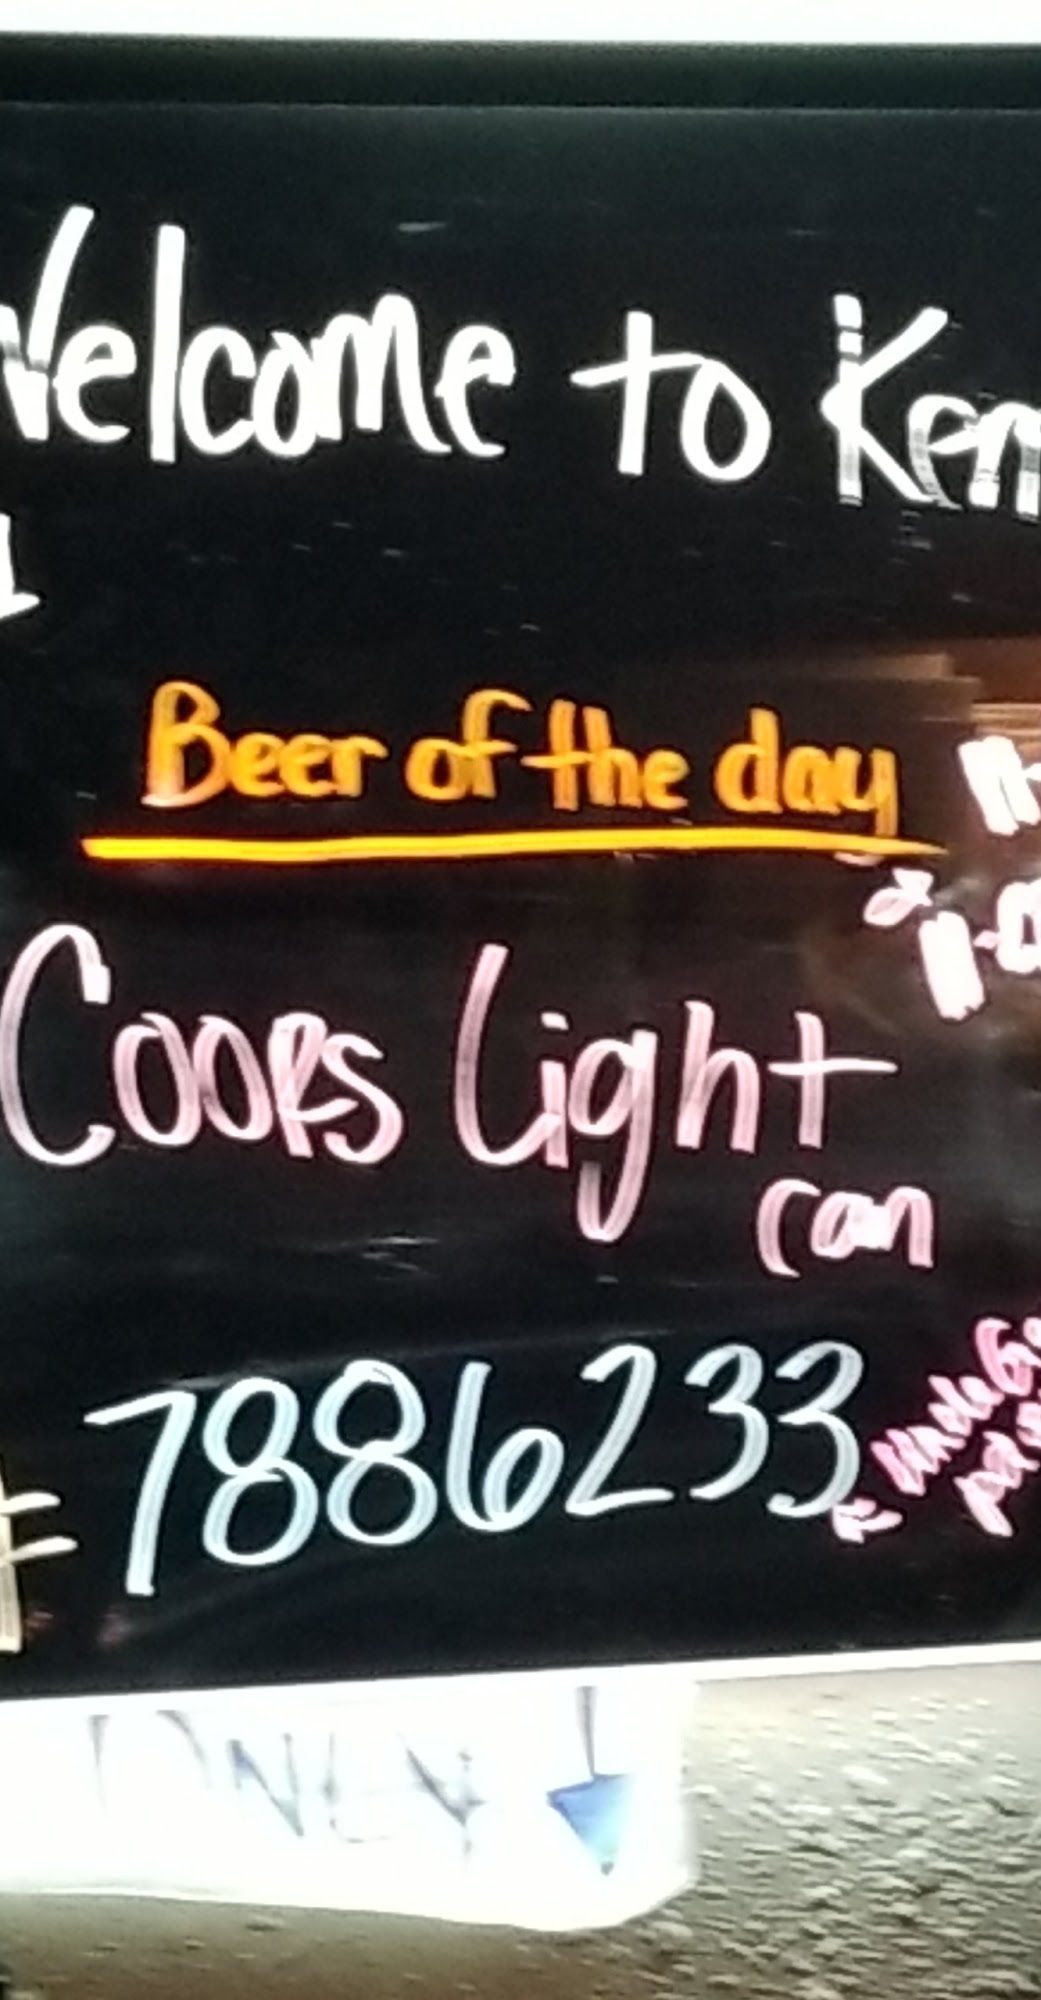 Welcome to Ken
Beer of the day
Coors Light
can
7886233
ONLY